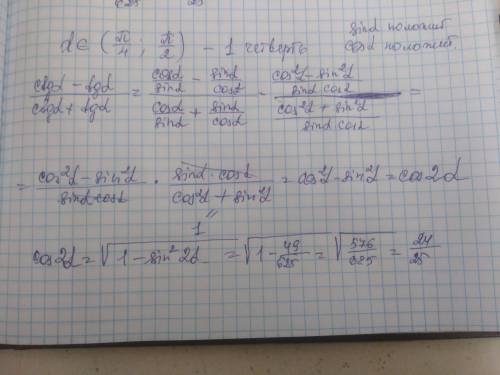 d ∈ (π/4 ; π/2) - 1 четверть sind положит. cosd положит.
(ctgd - tgd)/(ctgd + tgd) = (cosd/sind - sind/cosd)/(cosd/sind + sind/cosd) - ((cos²d - sin²d)/(sind cosd))/((cos²d + sin²d)/(sind cosd)) =
= (cos²d - sin²d)/(sind cosd) · (sind · cosd)/(cos²d + sin²d) = cos²d - sin²d = cos2d
"
1
cos2d = √(1 - sin²2d) = √(1 - 49/625) = √(576/625) = 24/25